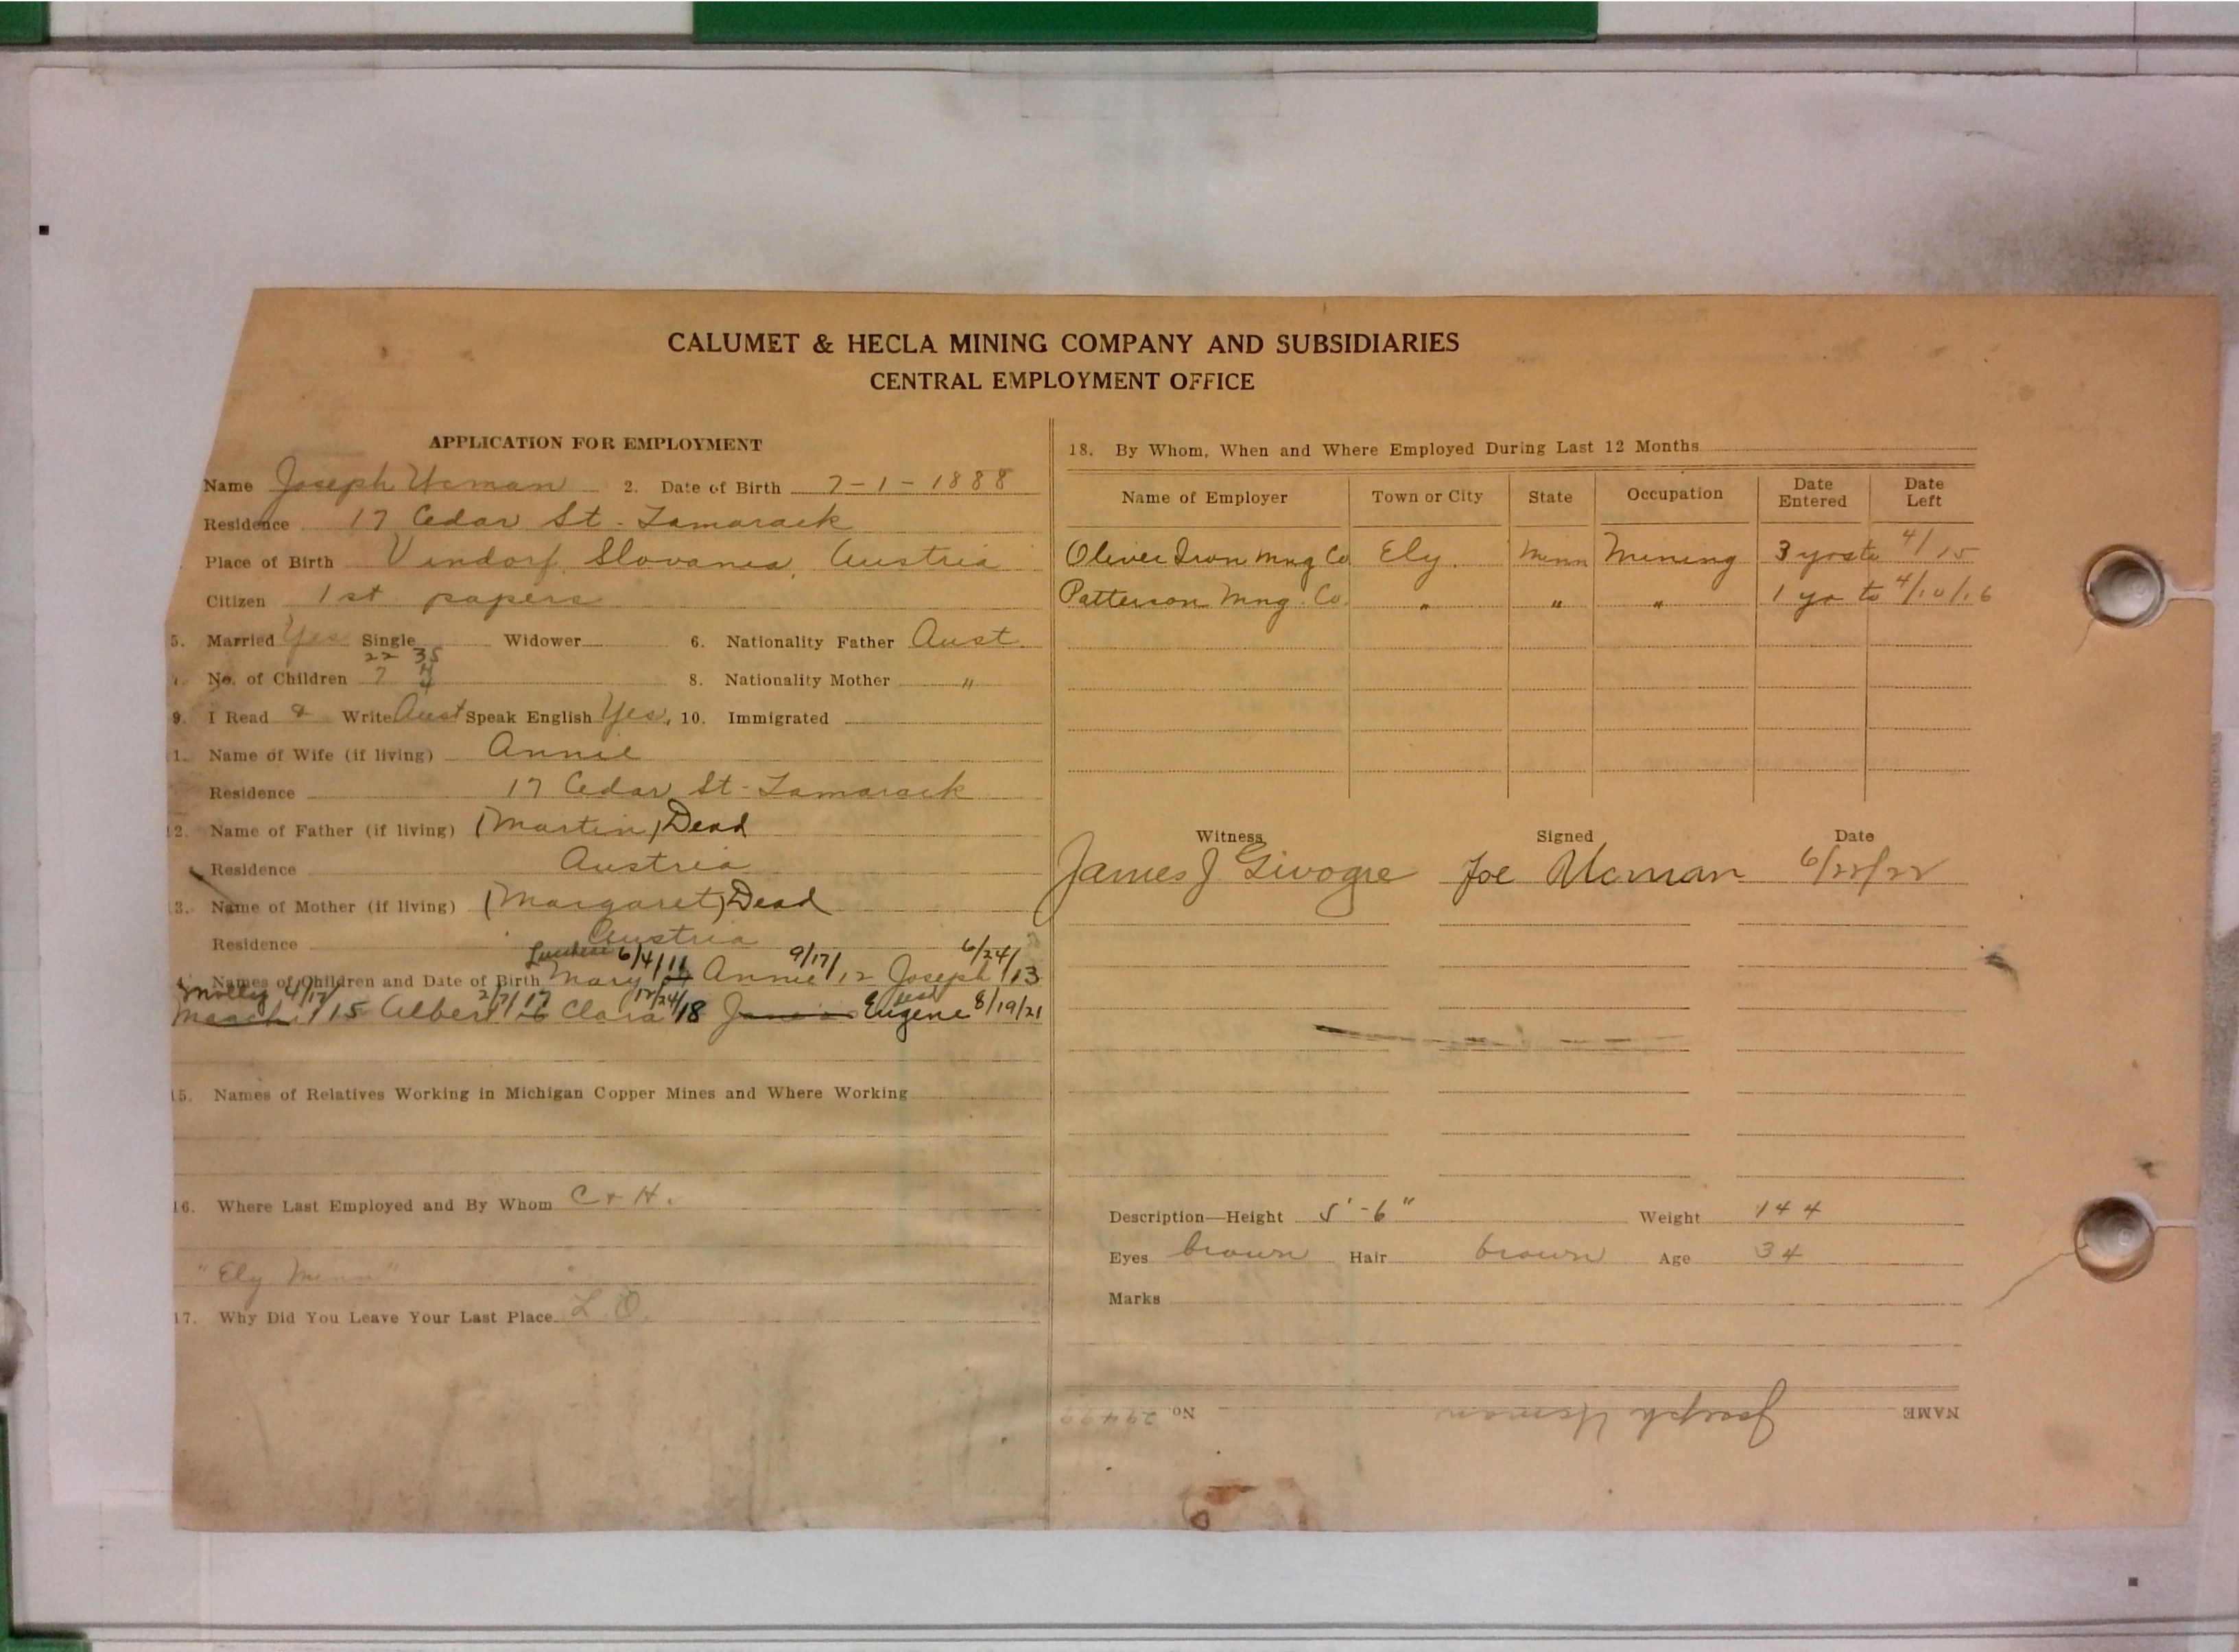 CALUMET & HECLA MINING COMPANY AND SUBSIDIARIES
CENTRAL EMPLOYMENT OFFICE
APPLICATION FOR EMPLOYMENT
Name Joseph Ucman 2. Date of Birth 7-1-1888
Residence 17 Cedar St - Tamarack
Place of Birth Vindorf, Slovania, Austria
Citizen 1st papers
5. Married Yes Single Widower 6. Nationality Father Aust.
22 35
No. of Children 7 4 8. Nationality Mother "
9. I Read & Write Aust Speak English Yes, 10. Immigrated
1. Name of Wife (if living) Annie
Residence 17 Cedar St - Tamarack
2. Name of Father (if living) (Martin) Dead
Residence Austria
3. Name of Mother (if living) (Margaret) Dead
Residence Austria
6/4/11 9/17/12 6/24/13
Names of Children and Date of Birth Mary Annie Joseph
Molly 4/17/15 2/7/17 12/24/18 Dead
Albert Clara Eugene 8/19/21
15. Names of Relatives Working in Michigan Copper Mines and Where Working
16. Where Last Employed and By Whom C + H.
"Ely Minn"
17. Why Did You Leave Your Last Place L.O.
18. By Whom, When and Where Employed During Last 12 Months
Name of Employer Town or City State Occupation Date Entered Date Left
Oliver Iron Mng Co Ely. Minn Mining 3 yrs to 4/15
Patterson Mng. Co. " " " 1 yr to 4/10/16
Witness Signed Date
James J Givogre Joe Ucman 6/22/22
Description—Height 5'-6" Weight 144
Eyes brown Hair brown Age 34
Marks
NAME Joseph Ucman No.